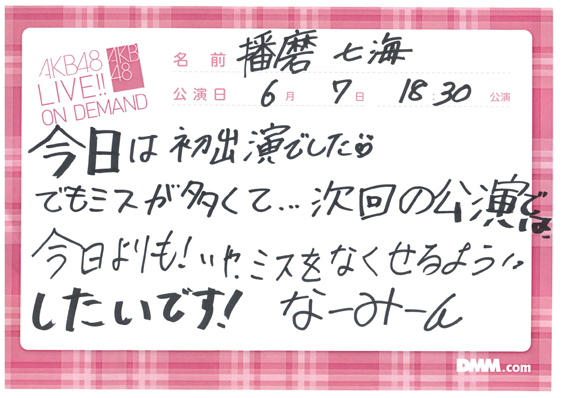 AKB48
LIVE!!
ON DEMAND
AKB
48
名前 播磨 七海
公演日 6月 7日 18:30 公演
今日は初出演でした
でもミスが多くて…次回の公演では、
今日よりも!いや、ミスをなくせるように
したいです! なーみーん
DMM.com